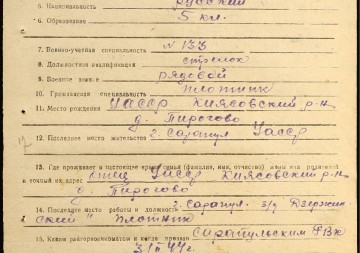 6. Национальность русский
7. Образование 5 кл.
7. Военно-учетная специальность № 133
8. Должностная квалификация стрелок
9. Военное звание рядовой
10. Гражданская специальность плотник
11. Место рождения УАССР Киясовский р-н
д. Пирогово
12. Последнее место жительства г. Сарапул УАССР
13. Где проживает в настоящее время семья (фамилия, имя, отчество) жены или родителей
и точный их адрес отец УАССР Киясовский р-н
д. Пирогово
14. Последнее место работы и должность г. Сарапул з/д Дзержин
ский" плотник
15. Каким райгорвоенкоматом и когда призван Сарапульским РВК